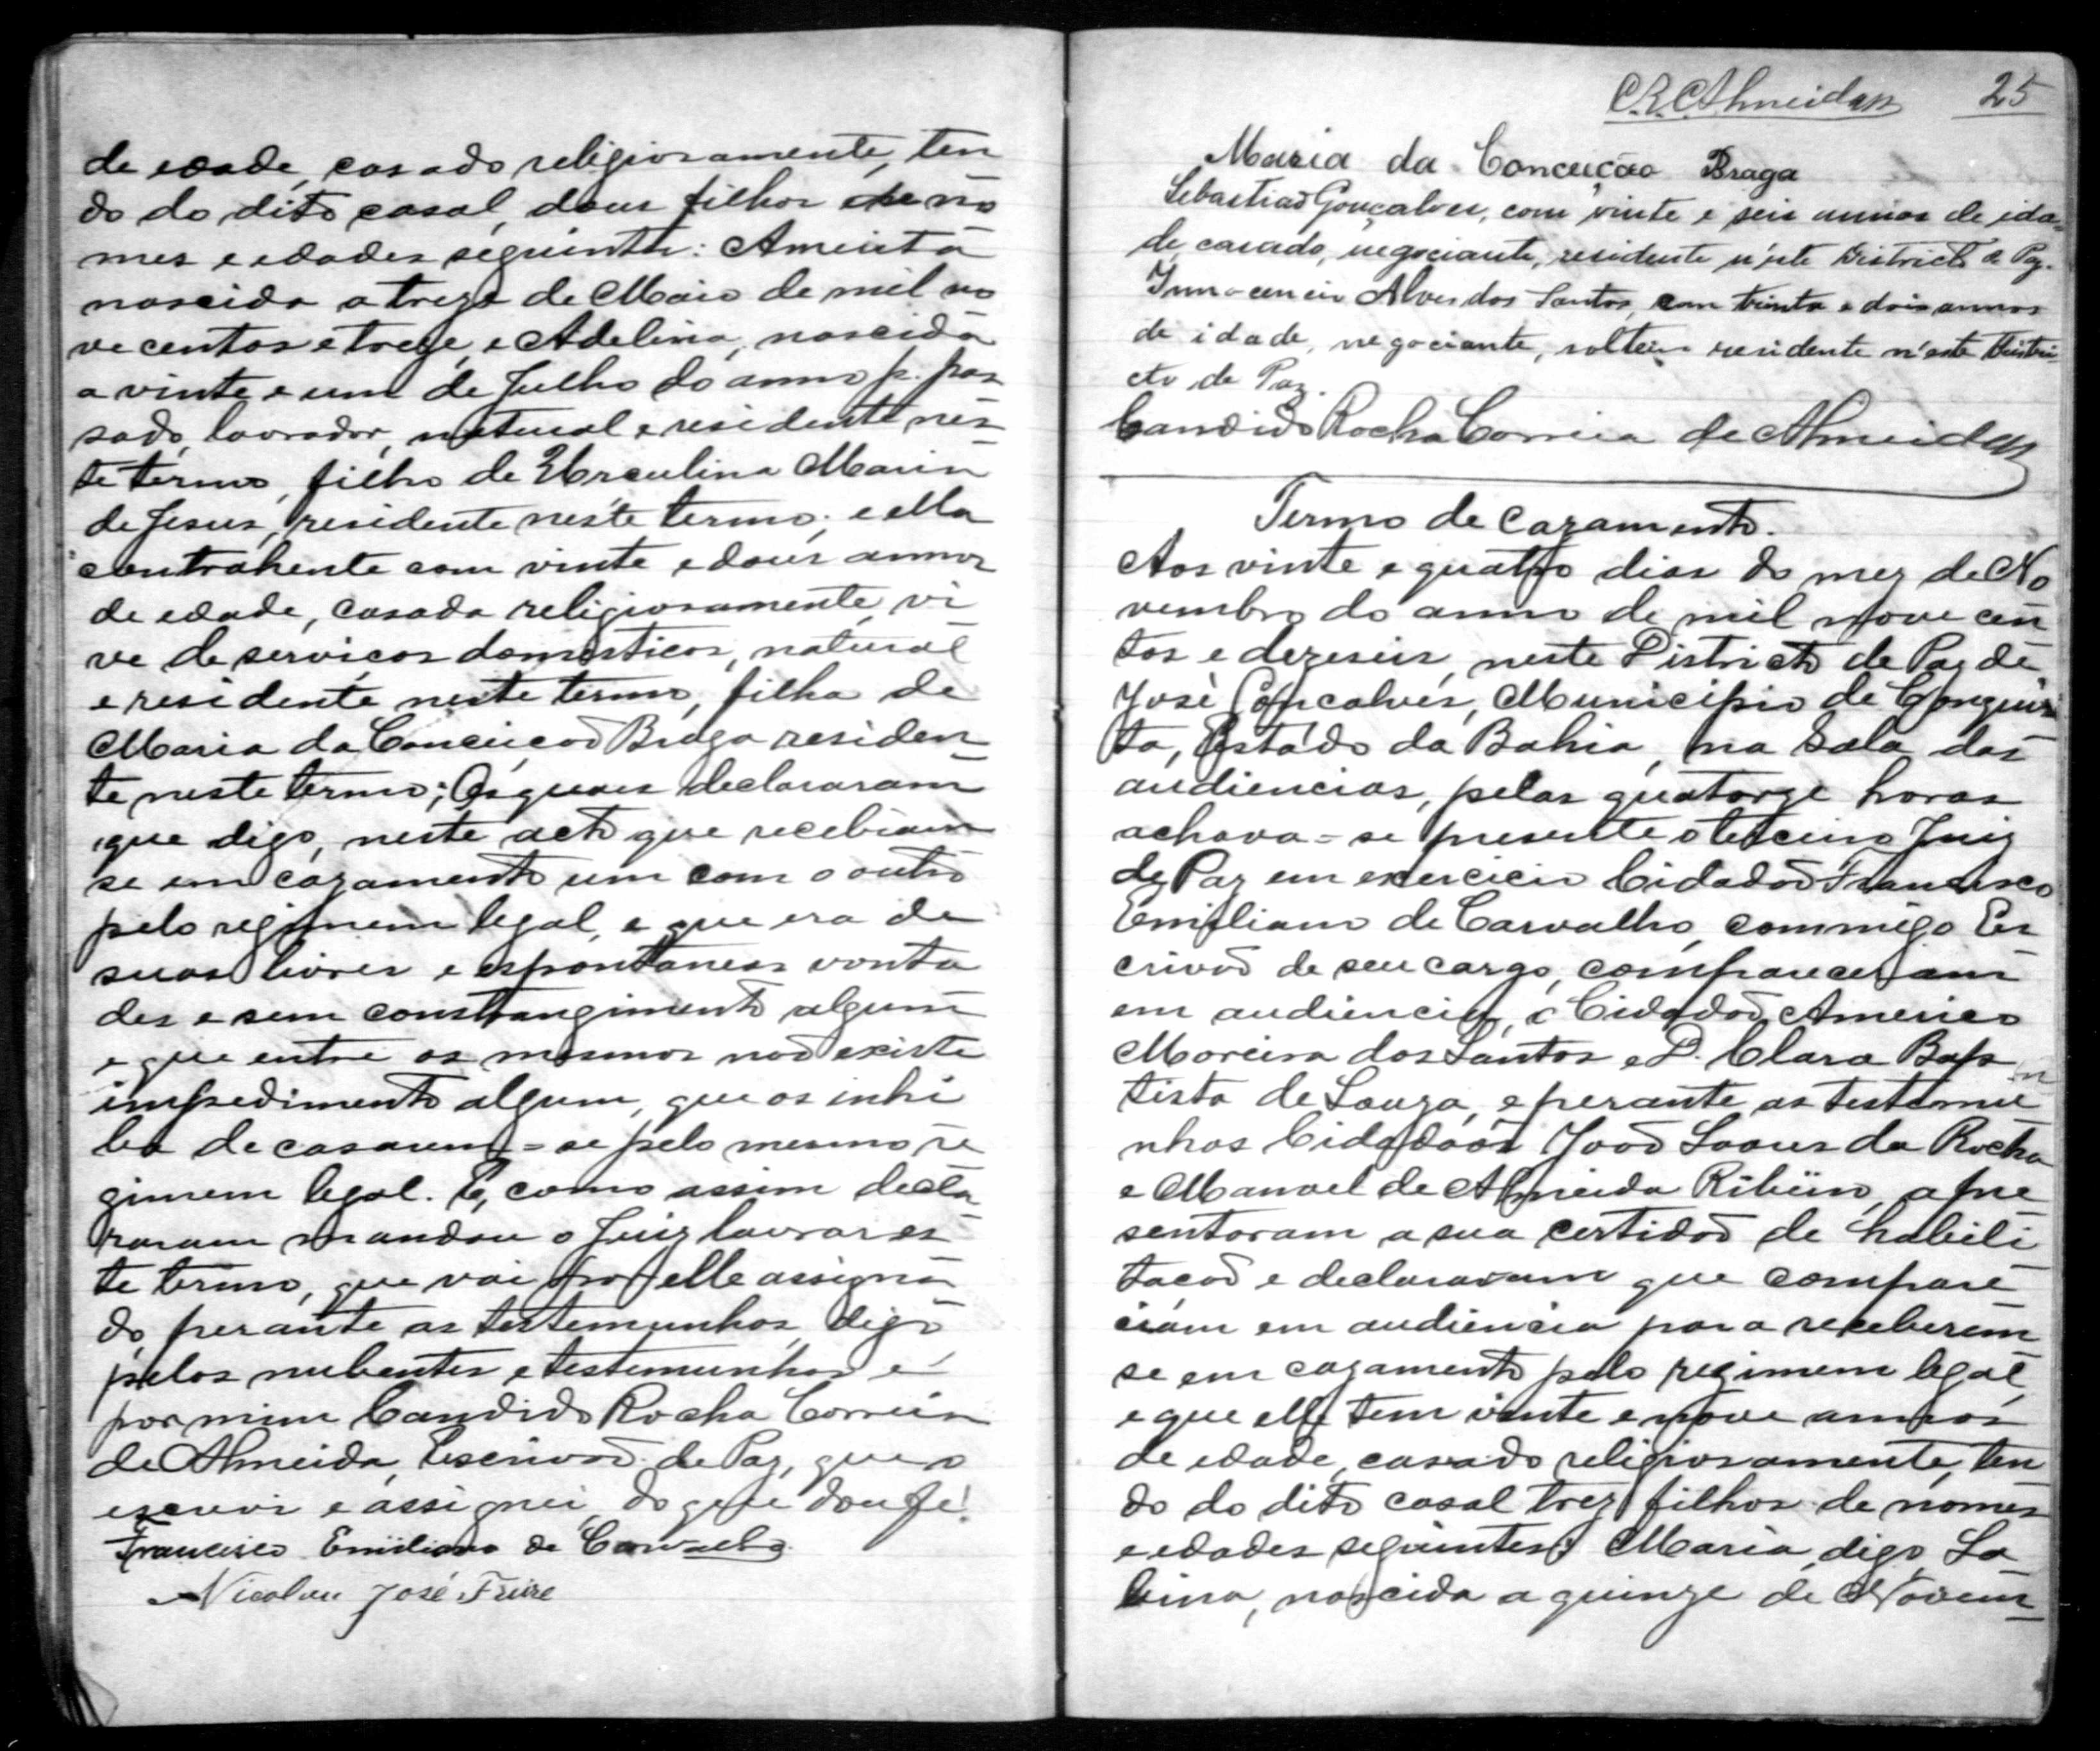 de edade, casado religiosamente, ten
do do dito casal, dous filhos de no
mes e edades seguintes: Amenta
nascida a treze de Maio de mil no
ve centos e treze, e Adelina, nascida
a vinte e um de Julho do anno p. pas
sado, lavrador, natural e residente nes
te termo, filho de Herculina Maria
de Jesus, residente neste termo; e ella
contrahente com vinte e dous annos
de edade, casada religiosamente, vi
ve de serviços domesticos, natural
e residente neste termo, filha de
Maria da Conceição Braga residen
te neste termo; Os quaes declararam
que digo, neste acto que recebiam
se em cazamento um com o outro
pelo regimem legal, e que era de
suas livres e espontaneas vonta
des e sem constrangimento algum
e que entre os mesmos não existe
impedimento algum, que os inhi
ba de casarem=se pelo mesmo re
gimem legal. E, como assim decla
raram mandou o Juiz lavrar es
te termo, que vai por elle assigna
do, perante as testemunhas, digo
pelos nubentes e testemunhas e
por mim Candido Rocha Correia
de Almeida, Escrivão de Paz, que o
escrevi e assignei, do que dou fé!
Francisco Emiliano de Carvalho
Nicolau José Freire
C.R.C.Almeida 25
Maria da Conceição Braga
Sebastião Gonçalves, com vinte e seis annos de ida
de, casado, negociante, residente n'este Districto de Paz.
Innocencio Alves dos Santos, com trinta e dois annos
de idade, negociante, solteiro residente n'este Distri
cto de Paz.
Candido Rocha Correia de Almeida
Termo de Cazamento.
Aos vinte e quatro dias do mez de No
vembro do anno de mil nove cen
tos e dezeseis, neste Districto de Paz de
José Gonçalves, Municipio de Conquis
ta, Estado da Bahia, na Sala das
audiencias, pelas quatorze horas
achava=se presente o terceiro Juiz
de Paz em exercicio Cidadão Francisco
Emiliano de Carvalho, commigo Es
crivão de seu cargo, compareceram
em audiencia, o Cidadão Americo
Moreira dos Santos e D. Clara Bap
tista de Souza, e perante as testemu
nhas Cidadãos João Soares da Rocha
e Manoel de Almeida Ribeiro, apre
sentaram a sua certidão de habili
tação e declararam que compare
ciam em audiencia para receberem
se em cazamento pelo regimem legal,
e que elle tem vinte e nove annos
de edade, casado religiosamente, ten
do do dito casal trez filhos de nomes
e edades seguintes: Maria, digo Sa
bina, nascida a quinze de Novem